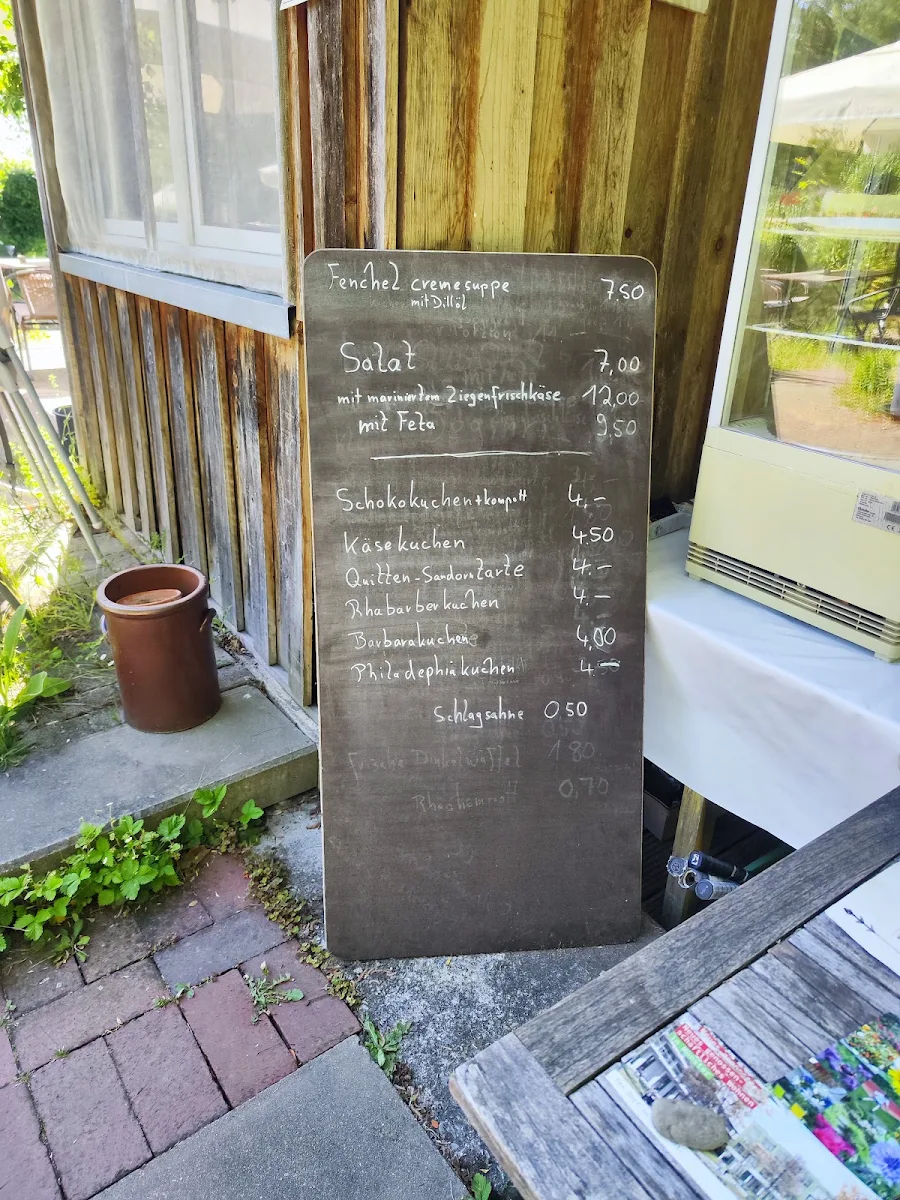 Fenchel cremesuppe 7,50
mit Dillöl
Salat 7,00
mit mariniertem Ziegenfrischkäse 12,00
mit Feta 9,50
Schokokuchen + kompott 4,-
Käsekuchen 4.50
Quitten-Sandorntarte 4.-
Rhabarberkuchen 4.-
Barbarakuchen 4,00
Philadelphiakuchen 4.-
Schlagsahne 0,50
Frische Dinkelwaffel 1 80
0,70